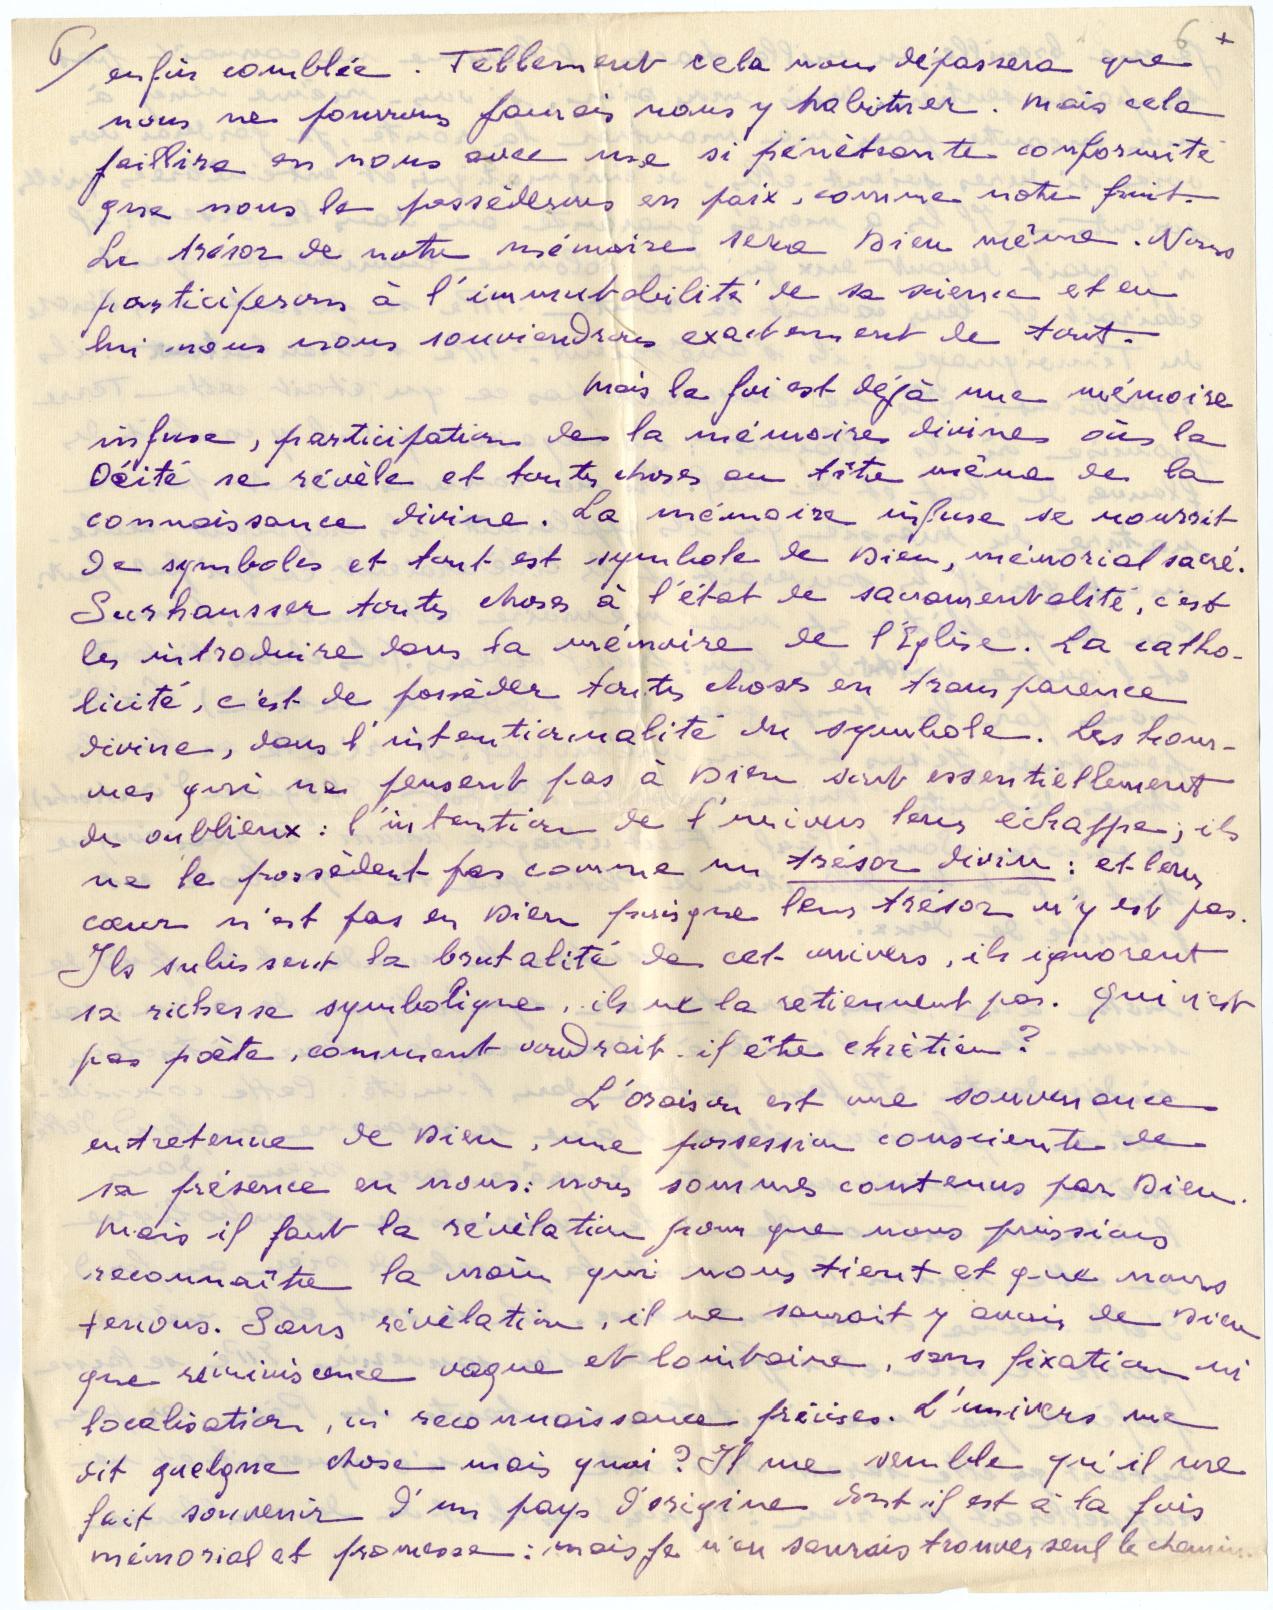 6/
6 +
enfin comblée. Tellement cela nous dépassera que
nous ne pourrons jamais nous y habituer. Mais cela
jaillira en nous avec une si pénétrante conformité
que nous le posséderons en paix, comme notre fruit.
Le trésor de notre mémoire sera Dieu même. Nous
participerons à l'immutabilité de sa science et en
lui nous nous souviendrons exactement de tout.
Mais la foi est déjà une mémoire
infuse, participation de la mémoire divine où la
Déité se révèle et toutes choses au titre même de la
connaissance divine. La mémoire infuse se nourrit
de symboles et tout est symbole de Dieu, mémorial sacré.
Surhausser toutes choses à l'état de sacramentalité, c'est
les introduire dans la mémoire de l'Eglise. La catho-
licité, c'est de posséder toutes choses en transparence
divine, dans l'intentionnalité du symbole. Les hom-
mes qui ne pensent pas à Dieu sont essentiellement
des oublieux : l'intention de l'univers leur échappe ; ils
ne le possèdent pas comme un trésor divin : et leur
cœur n'est pas en Dieu puisque leur trésor n'y est pas.
Ils subissent la brutalité de cet univers, ils ignorent
sa richesse symbolique, ils ne la retiennent pas. Qui n'est
pas poète, comment voudrait-il être chrétien ?
L'oraison est une souvenance
entretenue de Dieu, une possession consciente de
sa présence en nous : nous sommes contenus par Dieu.
Mais il faut la révélation pour que nous puissions
reconnaître la main qui nous tient et que nous
tenons. Sans révélation, il ne saurait y avoir de Dieu
que réminiscence vague et lointaine, sans fixation ni
localisation, ni reconnaissance précises. L'univers me
dit quelque chose mais quoi ? Il me semble qu'il me
fait souvenir d'un pays d'origine dont il est à la fois
mémorial et promesse : mais je n'en saurais trouver seul le chemin.